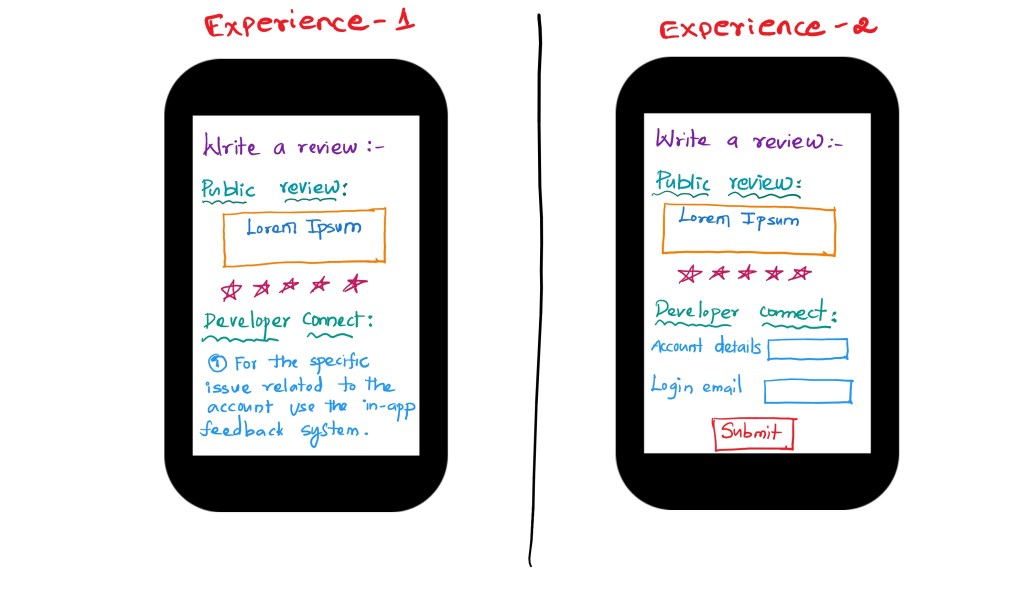 Experience-1
Write a review:-
Public review:
Lorem Ipsum
Developer Connect:
① For the specific
issue related to the
account use the in-app
feedback system.
Experience-2
Write a review:-
Public review:
Lorem Ipsum
Developer connect:
Account details
Login email
Submit